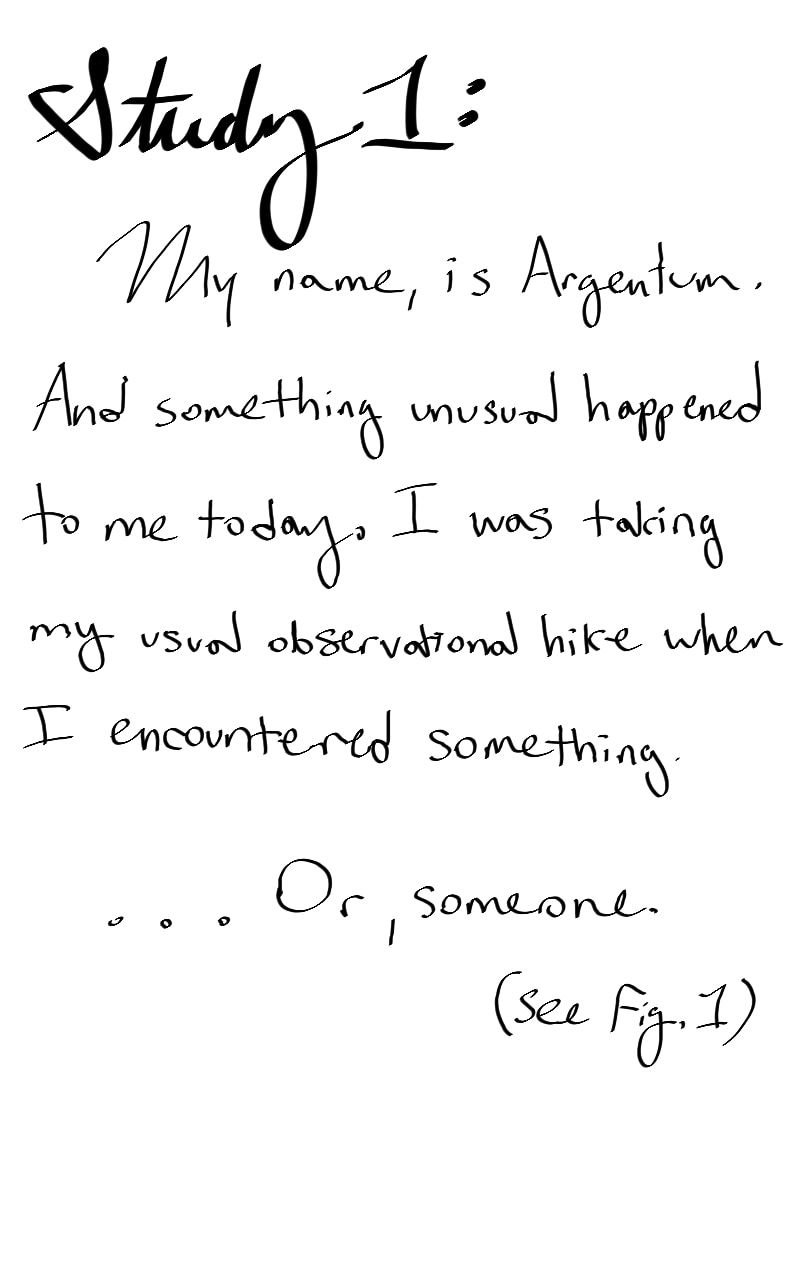 Study 1:
My name, is Argentum.
And something unusual happened
to me today. I was taking
my usual observational hike when
I encountered something.
... Or, someone.
(see Fig. 1)